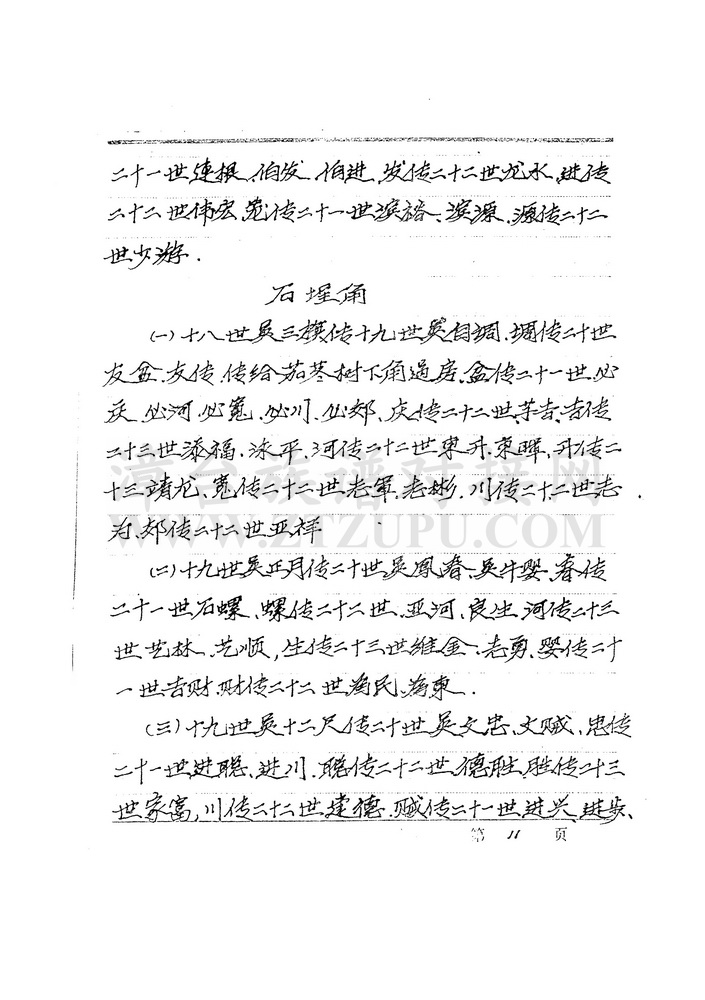 二十一世連根、伯发、伯进、发传二十二世龙水、进传
二十二世伟宏、宽传二十一世滨裕、滨源、源传二十二
世少游.
石埕角
(一)十八世吴三旗传十九世吴自调、调传二十世
友盆、友传、传给茄苳树下角过房、盆传二十一世必
庆、必河、必寬、必川、必郊、庆传二十二世芋吉、吉传
二十三世添福、泳平、河传二十二世東升、東暉、升传二
十三靖龙、寬传二十二世志軍、志彬、川传二十二世志
为、郊传二十二世亚祥
(二)十九世吴正月传二十世吴鳳春、吴牛婴、春传
二十一世石螺、螺传二十二世、亚河、良生、河传二十三
世艺林、艺顺,生传二十三世维金、志勇、婴传二十
一世吉财、财传二十二世為民、為東.
(三)十九世吴十二尺传二十世吴文忠、文贼、忠传
二十一世进聪、进川、聪传二十二世德胜、胜传二十三
世家富,川传二十二世建德、贼传二十一世进兴、进步、
第 11 页
漳台族谱对接网
WWW.ZTZUPU.COM